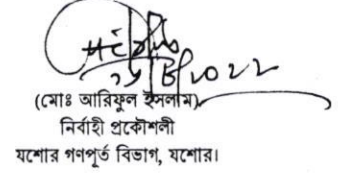 (মোঃ আরিফুল ইসলাম)
নির্বাহী প্রকৌশলী
যশোর গণপূর্ত বিভাগ, যশোর।